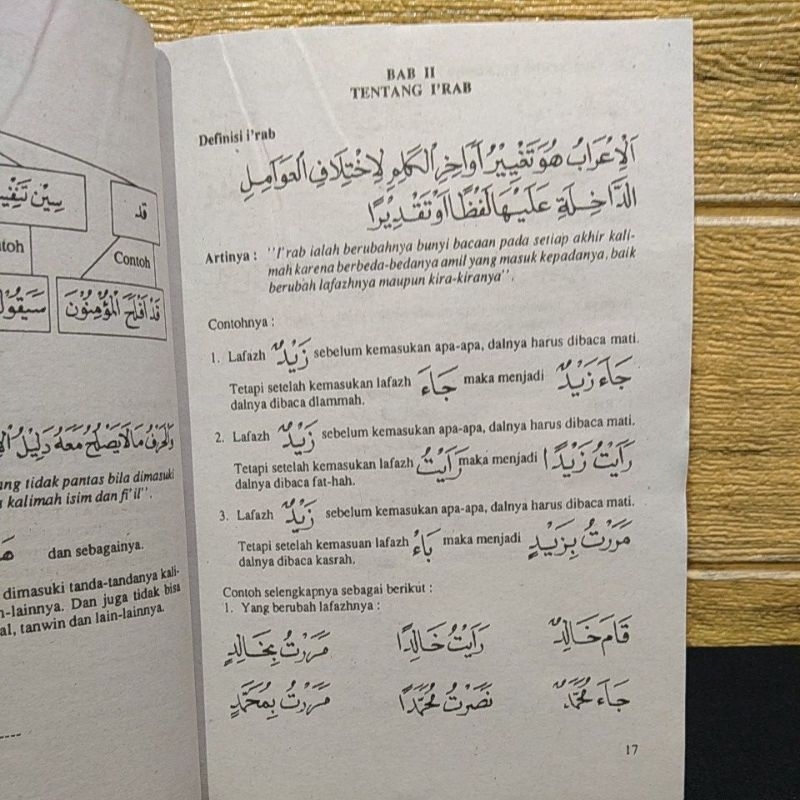 قد
سِيْن تَنْفِي
toh
Contoh
قَدْ اَفْلَحَ الْمُؤْمِنُوْنَ
سَيَقُوْلُ
وَالْحَرْفُ مَا لَا يَصْلُحُ مَعَهُ دَلِيْلُ
ang tidak pantas bila dimasuki
kalimah isim dan fi'il".
dan sebagainya.
dimasuki tanda-tandanya kali-
n-lainnya. Dan juga tidak bisa
al, tanwin dan lain-lainnya.
BAB II
TENTANG I'RAB
Definisi i'rab
اَلْاِعْرَابُ هُوَ تَغْيِيْرُ اَوَاخِرِ الْكَلِمِ لِاخْتِلَافِ الْعَوَامِلِ
الدَّاخِلَةِ عَلَيْهَا لَفْظًا اَوْ تَقْدِيْرًا
Artinya : "I'rab ialah berubahnya bunyi bacaan pada setiap akhir kali-
mah karena berbeda-bedanya amil yang masuk kepadanya, baik
berubah lafazhnya maupun kira-kiranya".
Contohnya :
1. Lafazh زَيْدٌ sebelum kemasukan apa-apa, dalnya harus dibaca mati.
Tetapi setelah kemasukan lafazh جَاءَ maka menjadi جَاءَ زَيْدٌ
dalnya dibaca dlammah.
2. Lafazh زَيْدٌ sebelum kemasukan apa-apa, dalnya harus dibaca mati.
Tetapi setelah kemasukan lafazh رَاَيْتُ maka menjadi رَاَيْتُ زَيْدًا
dalnya dibaca fat-hah.
3. Lafazh زَيْدٌ sebelum kemasukan apa-apa, dalnya harus dibaca mati.
Tetapi setelah kemasuan lafazh بَاءُ maka menjadi مَرَرْتُ بِزَيْدٍ
dalnya dibaca kasrah.
Contoh selengkapnya sebagai berikut :
1. Yang berubah lafazhnya :
قَامَ خَالِدٌ رَاَيْتُ خَالِدًا مَرَرْتُ بِخَالِدٍ
جَاءَ مُحَمَّدٌ نَصَرْتُ مُحَمَّدًا مَرَرْتُ بِمُحَمَّدٍ
17